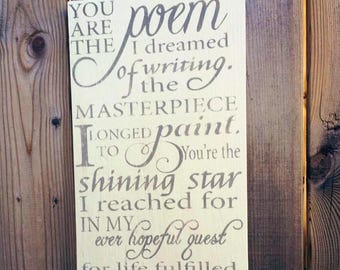 YOU ARE THE poem
I dreamed
of writing.
the
MASTERPIECE
I LONGED TO paint.
You're the
shining star
I reached for
IN MY
ever hopeful quest
for life fulfilled